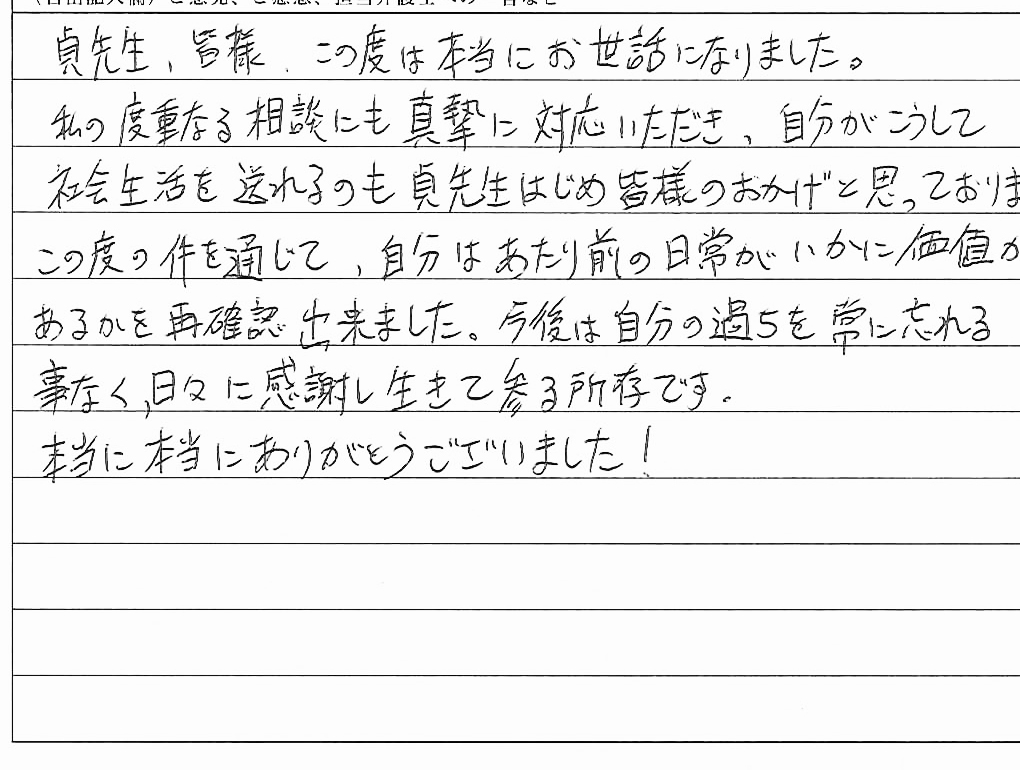 (自由記入欄)ご意見、ご感想、担当弁護士への一言など
貞先生、皆様、この度は本当にお世話になりました。
私の度重なる相談にも真摯に対応いただき、自分がこうして
社会生活を送れるのも貞先生はじめ皆様のおかげと思っておりま
この度の件を通じて、自分はあたり前の日常がいかに価値が
あるかを再確認出来ました。今後は自分の過ちを常に忘れる
事なく、日々に感謝し生きて参る所存です。
本当に本当にありがとうございました!